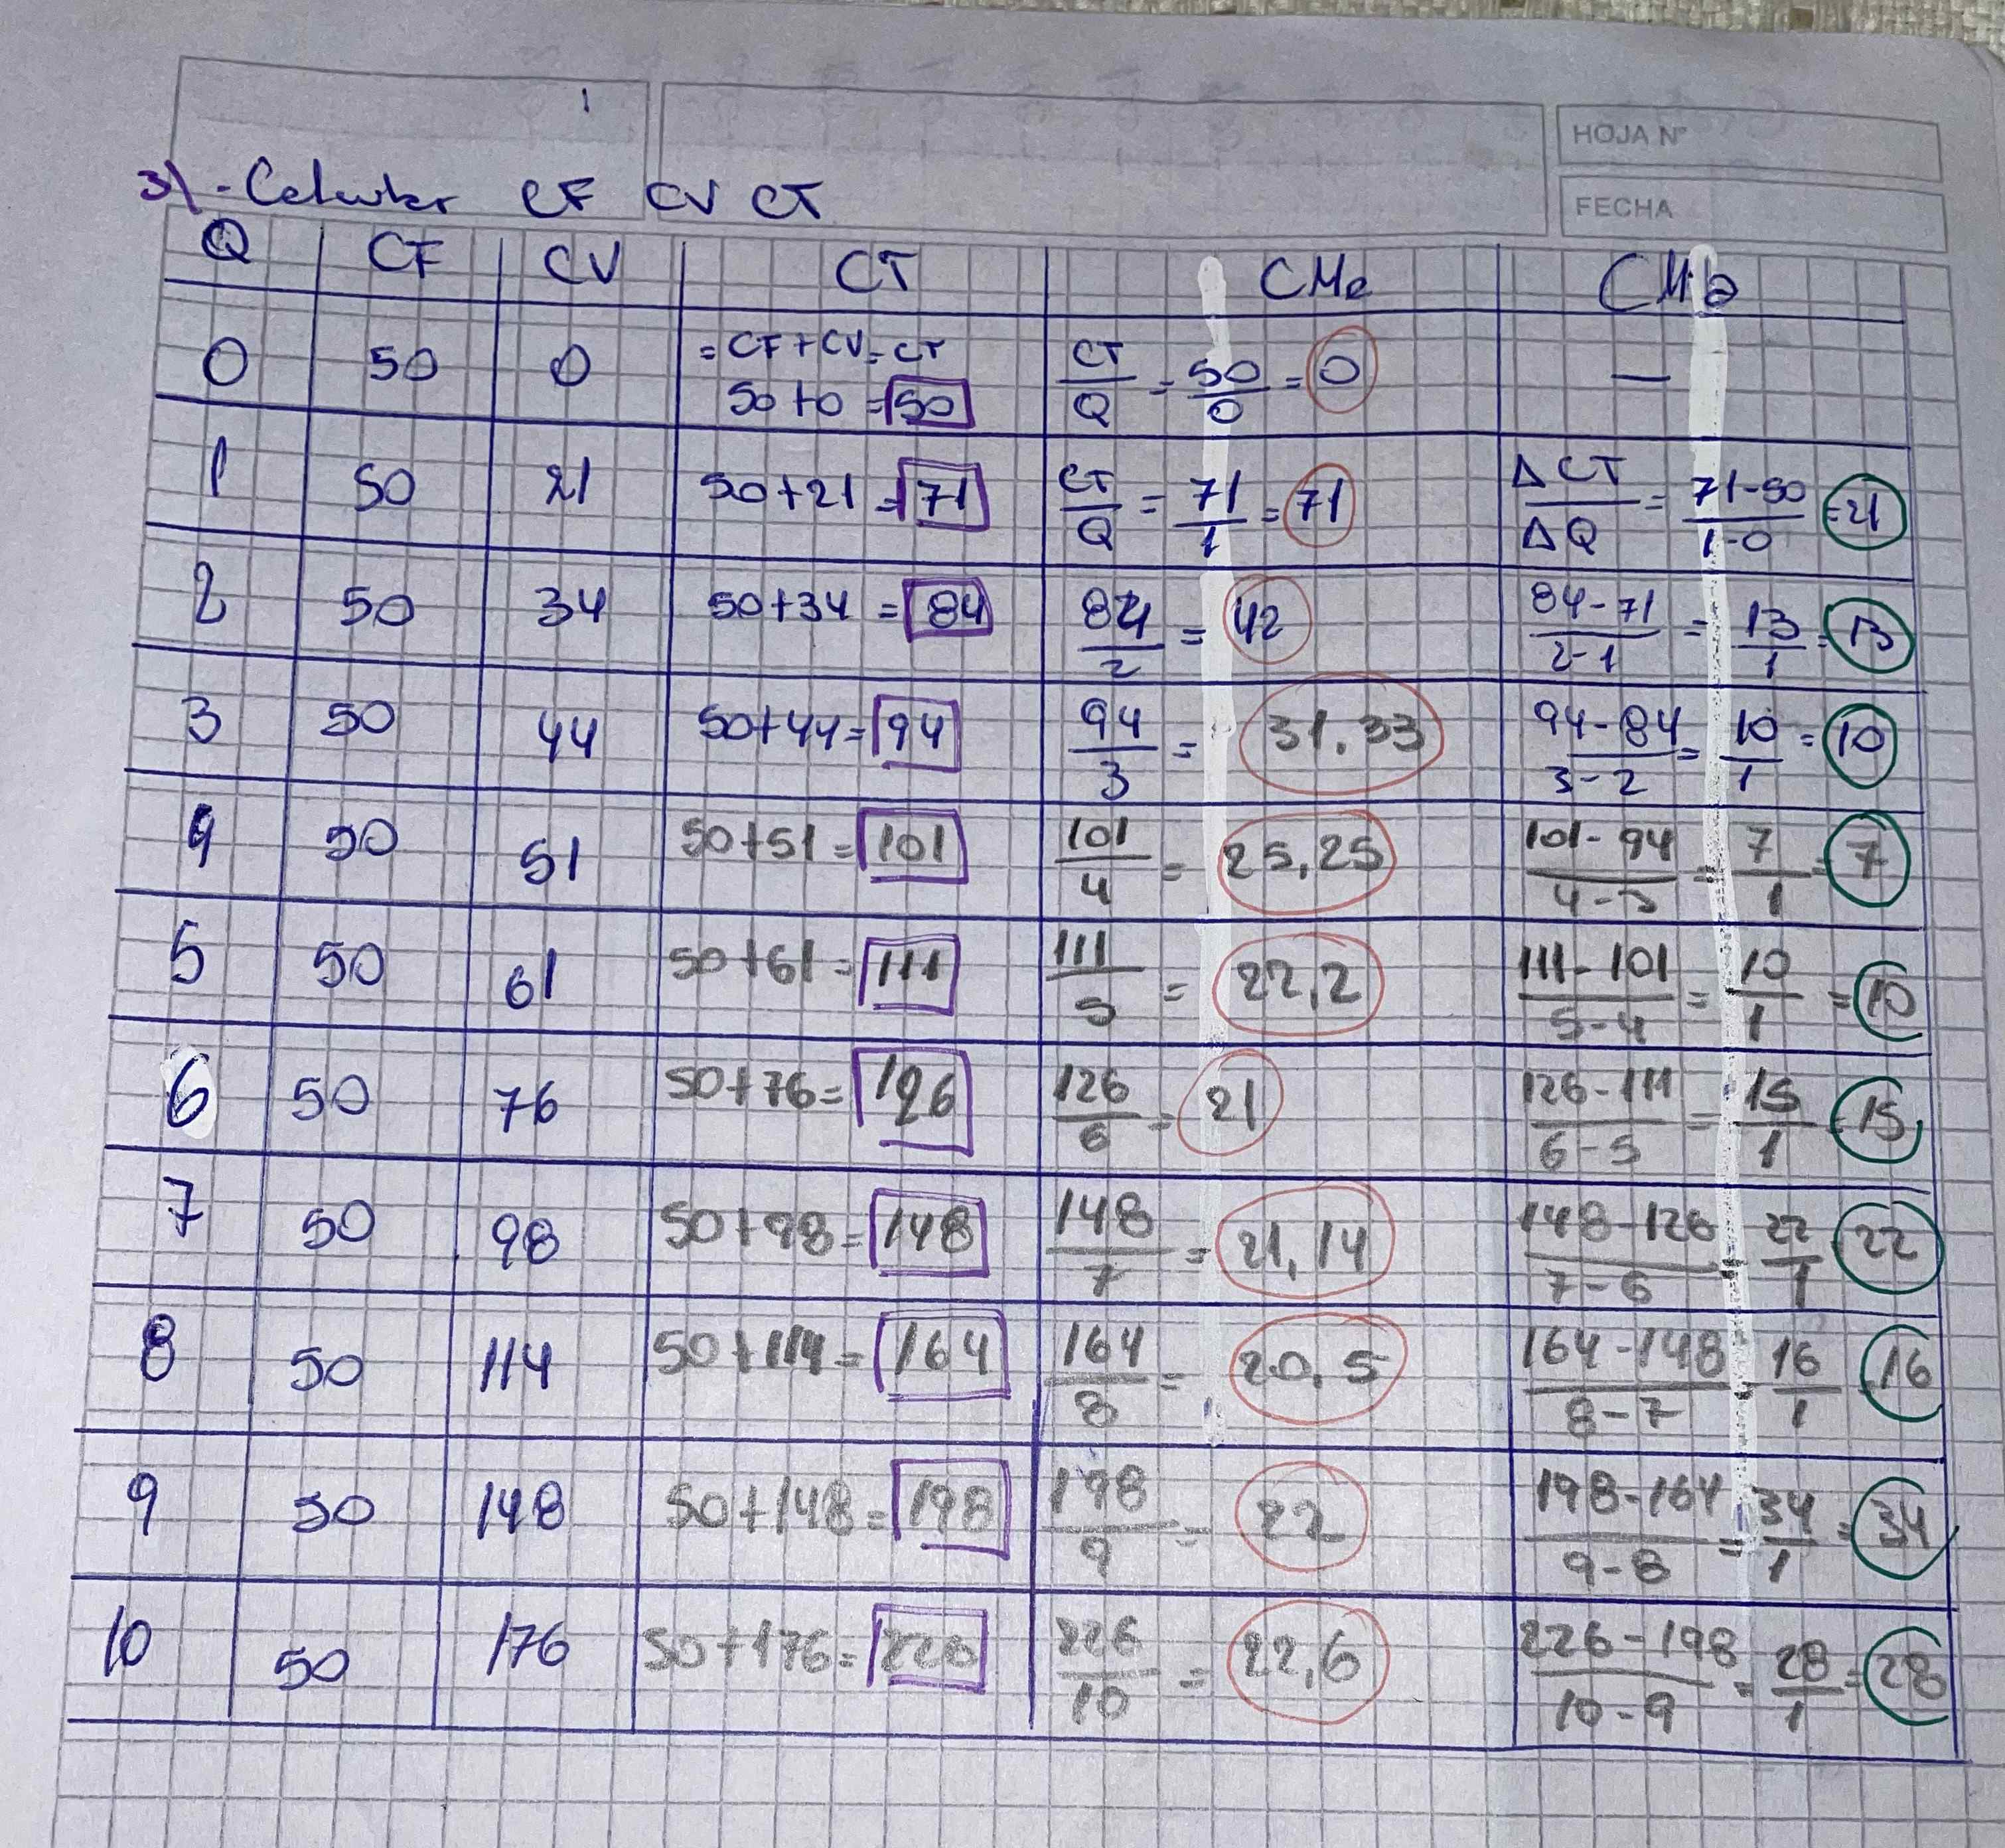 HOJA Nº
FECHA
3) - Calcular CF CV CT
Q CF CV CT CMe CMa
0 50 0 = CF + CV = CT 50 + 0 = 50 CT/Q = 50/0 = 0 —
1 50 21 50+21 = 71 CT/Q = 71/1 = 71 ΔCT/ΔQ = 71-50/1-0 = 21
2 50 34 50+34 = 84 84/2 = 42 84-71/2-1 = 13/1 = 13
3 50 44 50+44 = 94 94/3 = 31.33 94-84/3-2 = 10/1 = 10
4 50 51 50+51 = 101 101/4 = 25,25 101-94/4-3 = 7/1 = 7
5 50 61 50+61 = 111 111/5 = 22,2 111-101/5-4 = 10/1 = 10
6 50 76 50+76 = 126 126/6 = 21 126-111/6-5 = 15/1 = 15
7 50 98 50+98 = 148 148/7 = 21,14 148-126/7-6 = 22/1 = 22
8 50 114 50+114 = 164 164/8 = 20,5 164-148/8-7 = 16/1 = 16
9 50 148 50+148 = 198 198/9 = 22 198-164/9-8 = 34/1 = 34
10 50 176 50+176 = 226 226/10 = 22,6 226-198/10-9 = 28/1 = 28